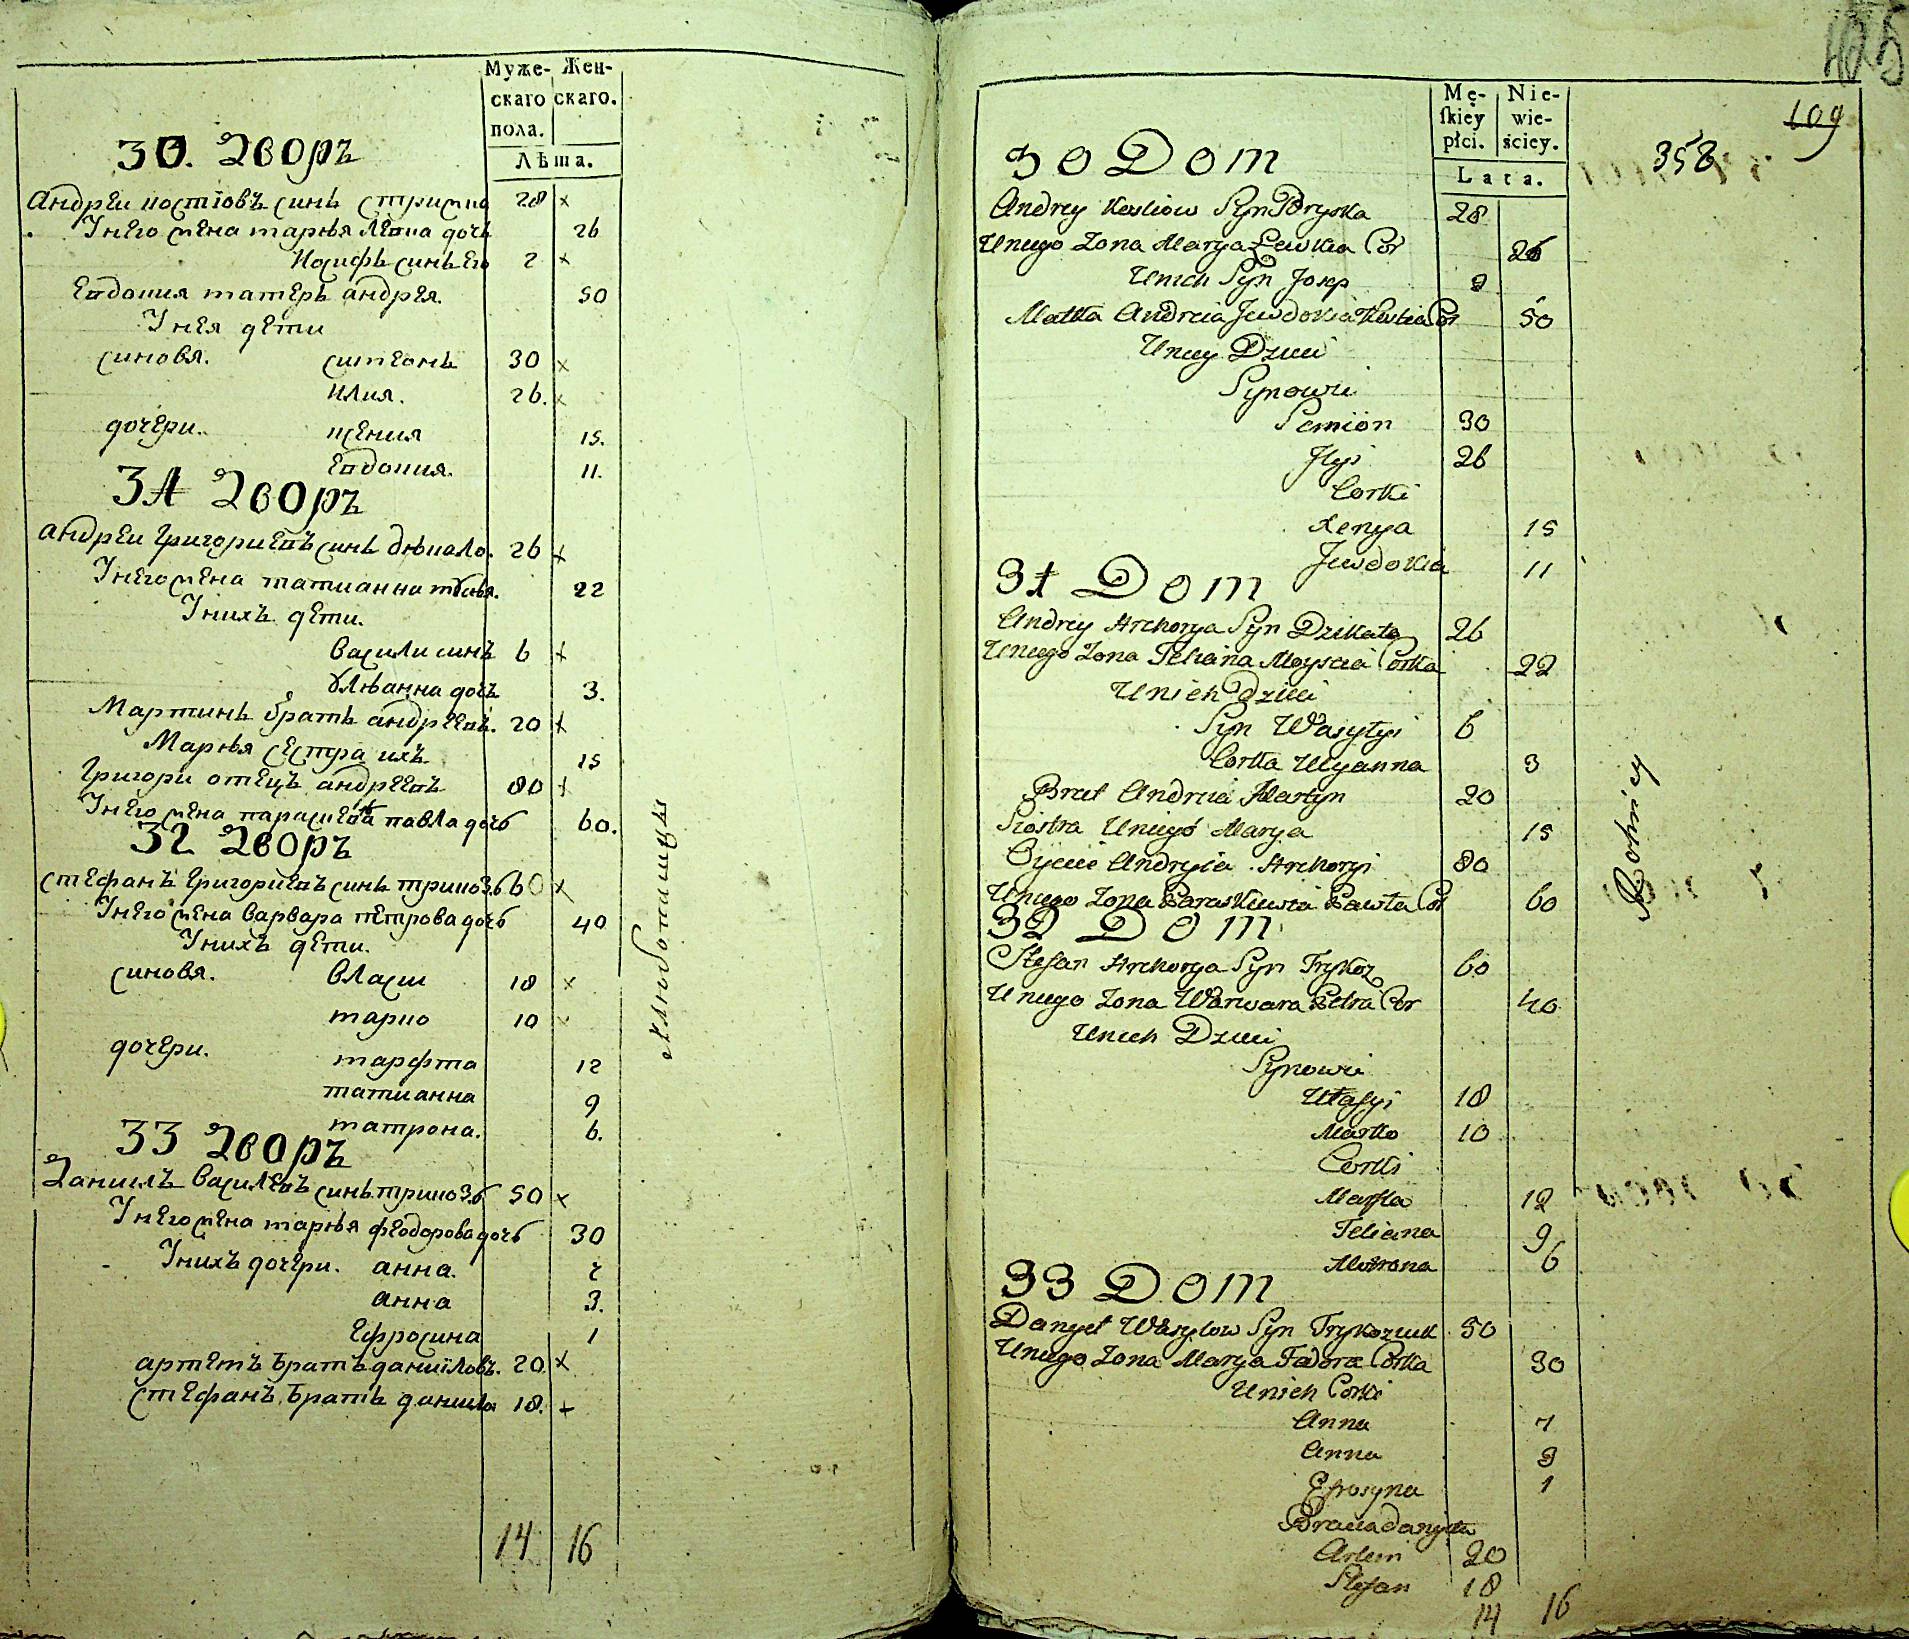 Муже-
скаго
пола.
Жен-
скаго.
Лѣта.
30. Дворъ
Андреи костіовъ синь 28 х
Унего жена марѣя дочь 26
Иосифь синь его 2 х
Евдокия матерь андрея. 50
Унея дети
синовя. симеонь 30 х
илия. 26. х
дочери. ксения 15.
Евдокия. 11.
31 Дворъ
Андреи григориевъ синь 26 х
Унего жена татианна 22
Унихъ дети.
Васили синъ 6 х
улѣанна дочь 3.
Мартинь братъ андреевъ. 20 х
Марѣя сестра ихъ 15
Григори отецъ андреевъ 80 х
Унего жена параскева павла дочь 60.
32 Дворъ
Стефанъ григориевъ синь трикозъ 60 х
Унего жена варвара петрова дочь 40
Унихъ дети.
синовя. власи 18 х
марко 10 х
дочери. марфта 12
татианна 9
матрона. 6.
33 Дворъ
Данилъ василевъ синь трикозъ 50 х
Унего жена марѣя феодорова дочь 30
Унихъ дочери. анна. 7
анна 3.
Ефросина 1
артемъ братъ даниїловъ. 20 х
Стефанъ братъ данила 18. х
14 16
Mę-
skiey
płci.
Nie-
wie-
ściey.
Lata.
109
358
30 Dom
Andrey Kostiow Syn 28
Uniego Zona Marya Lewkia Cor 26
Unich Syn Josep 2
Matka Andreia Jewdokia Kostia Cor 50
Uniey Dzieci
Synowie
Semion 30
Jlyi 26
Corki
Xenya 15
Jewdokia 11
31 Dom
Andrey Hrehorya Syn Dzikało 26
Uniego Zona Teliana Moyseia Corka 22
Unich Dzieci
Syn Wasylyi 6
Corka Ulyanna 3
Brat Andreia Martyn 20
Siostra Uniego Marya 15
Oyciec Andryia Hrehoryi 80
Uniego Zona Paraskiewia Pawła Cor 60
32 Dom
Stefan Hrehorya Syn Trykoz 60
Uniego Zona Warwara Petra Cor 40
Unich Dzieci
Synowie
Ułasyi 18
Marko 10
Corki
Marfta 12
Teliana 9
Motrona 6
33 Dom
Danyel Wasylow Syn Trykoziuk 50
Uniego Zona Marya Fadora Corka 30
Unich Corki
Anna 7
Anna 3
Efrosyna 1
Bracia Danyła
Artem 20
Stefan 18
14 16